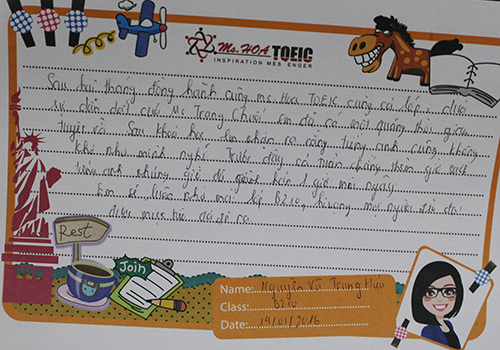 Ms. HOA TOEIC
INSPIRATION MESSENGER
Sau hai tháng đồng hành cùng Ms Hoa TOEIC cùng cả lớp, dưới
sự dẫn dắt của Ms Trang Chuối, em đã có một quãng thời gian
tuyệt vời. Sau khoá học, em nhận ra rằng tiếng anh cũng không
khó như mình nghĩ. Trước đây cả tuần chẳng thèm giở sách
tiếng anh nhưng giờ đã giành hơn 1 giờ mỗi ngày.
Em sẽ luôn nhớ mọi lớp B210, hi vọng mọi người đều đạt
được mục tiêu đã đề ra
Rest
Join
Name: Nguyễn Vũ Trung
Class: B210
Date: 14/01/2016